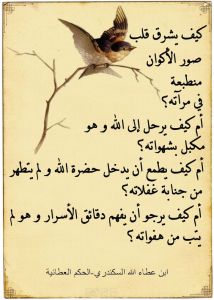 كيف يشرق قلب
صور الأكوان
منطبعة
في مرآته؟
أم كيف يرحل إلى الله و هو
مكبل بشهواته؟
أم كيف يطمع أن يدخل حضرة الله و لم يتطهر
من جنابة غفلاته؟
أم كيف يرجو أن يفهم دقائق الأسرار و هو لم
يتب من هفواته؟
ابن عطاء الله السكندري-الحكم العطائية